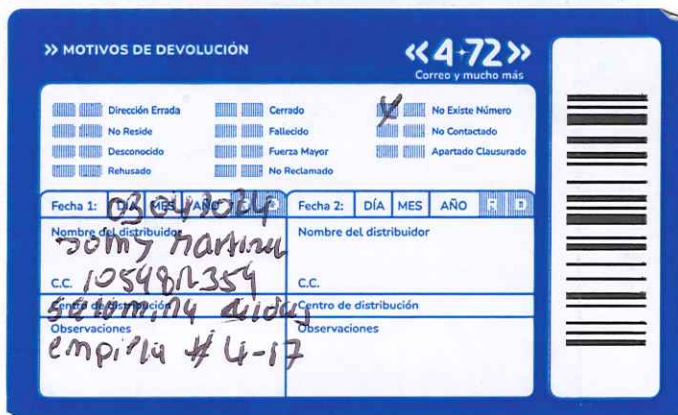 >> MOTIVOS DE DEVOLUCIÓN
<<4-72>>
Correo y mucho más
Dirección Errada
No Reside
Desconocido
Rehusado
Cerrado
Fallecido
Fuerza Mayor
No Reclamado
No Existe Número
No Contactado
Apartado Clausurado
Fecha 1: DÍA MES AÑO R D
Nombre del distribuidor
C.C.
Centro de distribución
Observaciones
empieza # 4-17
Fecha 2: DÍA MES AÑO R D
Nombre del distribuidor
C.C.
Centro de distribución
Observaciones